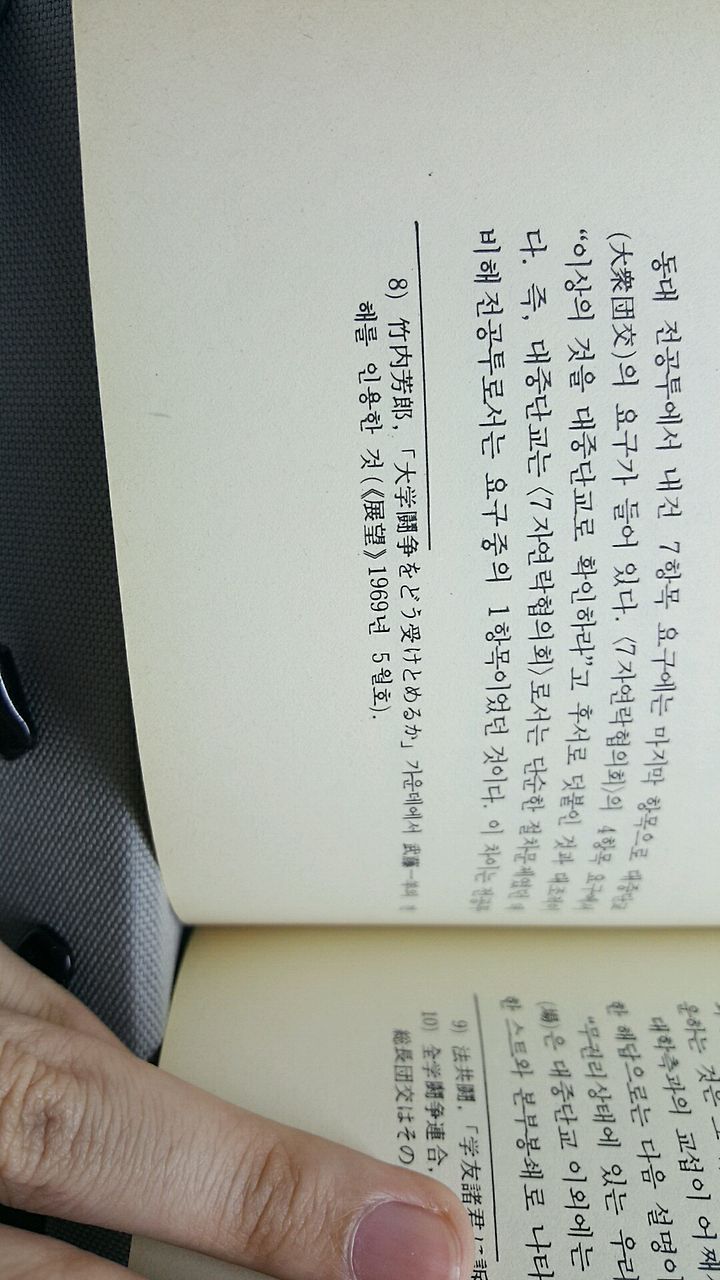 동대 전공투에서 내건 7항목 요구에는 마지막 항목으로 대중단교
(大衆団交)의 요구가 들어 있다. 〈7자연락협의회〉의 4항목 요구에서
“이상의 것을 대중단교로 확인하라”고 후서로 덧붙인 것과 대조적이
다. 즉, 대중단교는 〈7자연락협의회〉로서는 단순한 절차문제였던 데
비해 전공투로서는 요구 중의 1항목이었던 것이다. 이 차이는 전공투
8) 竹内芳郎, 「大学闘争をどう受けとめるか」 가운데에서 武藤一羊의
해를 인용한 것(《展望》1969년 5월호).
운하는 것은
대학측과의 교섭이 어째
한 해답으로는 다음 설명이
“무권리상태에 있는 우리
(場)은 대중단교 이외에는
한 스트와 본부봉쇄로 나타
9) 法共闘, 「学友諸君に訴
10) 全学闘争連合,
総長団交はその